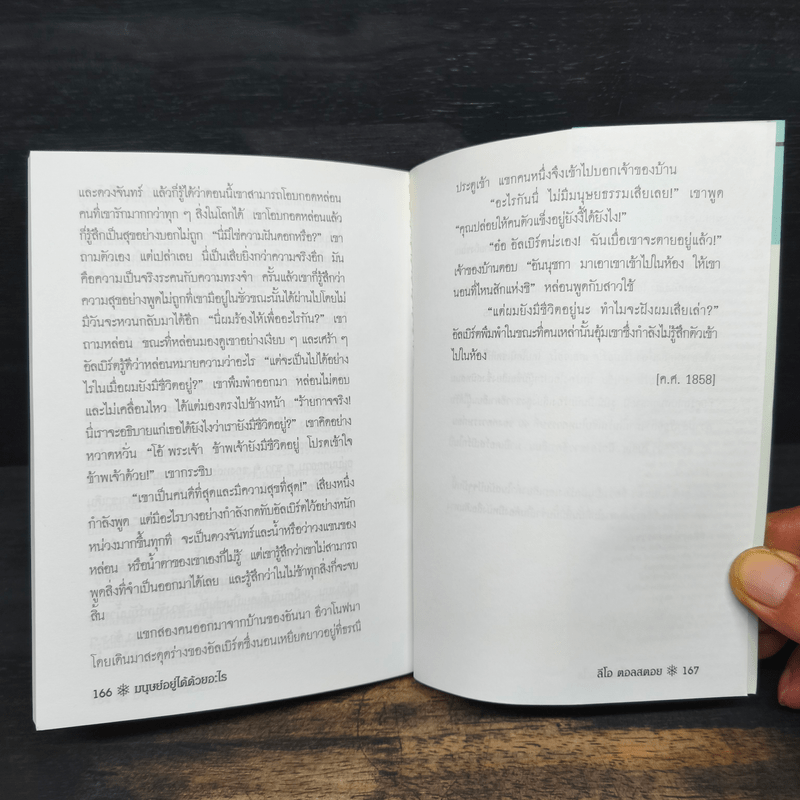 และดวงจันทร์ แล้วก็รู้ได้ว่าตอนนี้เขาสามารถโอบกอดหล่อน
คนที่เขารักมากกว่าทุก ๆ สิ่งในโลกได้ เขาโอบกอดหล่อนแล้ว
ก็รู้สึกเป็นสุขอย่างบอกไม่ถูก “นี่มิใช่ความฝันดอกหรือ?” เขา
ถามตัวเอง แต่เปล่าเลย นี่เป็นเสียยิ่งกว่าความจริงอีก มัน
คือความเป็นจริงระคนกับความทรงจำ ครั้นแล้วเขาก็รู้สึกว่า
ความสุขอย่างพูดไม่ถูกที่เขามีอยู่ในชั่วขณะนั้นได้ผ่านไปโดยไม่
มีวันจะหวนกลับมาได้อีก “นี่ผมร้องไห้เพื่ออะไรกัน?” เขา
ถามหล่อน ขณะที่หล่อนมองดูเขาอย่างเงียบ ๆ และเศร้า ๆ
อัลเบิร์ตรู้ดีว่าหล่อนหมายความว่าอะไร “แต่จะเป็นไปได้อย่าง
ไรในเมื่อผมยังมีชีวิตอยู่?” เขาพึมพำออกมา หล่อนไม่ตอบ
และไม่เคลื่อนไหว ได้แต่มองตรงไปข้างหน้า “ร้ายกาจจริง!
นี่เราจะอธิบายแก่เธอได้ยังไงว่าเรายังมีชีวิตอยู่?” เขาคิดอย่าง
หวาดหวั่น “โอ้ พระเจ้า ข้าพเจ้ายังมีชีวิตอยู่ โปรดเข้าใจ
ข้าพเจ้าด้วย!” เขากระซิบ
“เขาเป็นคนดีที่สุดและมีความสุขที่สุด!” เสียงหนึ่ง
กำลังพูด แต่มีอะไรบางอย่างกำลังกดทับอัลเบิร์ตไว้อย่างหนัก
หน่วงมากขึ้นทุกที จะเป็นดวงจันทร์และน้ำหรือว่าวงแขนของ
หล่อน หรือน้ำตาของเขาเองก็ไม่รู้ แต่เขารู้สึกว่าเขาไม่สามารถ
พูดสิ่งที่จำเป็นออกมาได้เลย และรู้สึกว่าในไม่ช้าทุกสิ่งก็จะจบ
สิ้น
แขกสองคนออกมาจากบ้านของอันนา อิวาโนฟนา
โดยเดินมาสะดุดร่างของอัลเบิร์ตซึ่งนอนเหยียดยาวอยู่ที่ธรณี
166 ❄ มนุษย์อยู่ได้ด้วยอะไร
ประตูเข้า แขกคนหนึ่งจึงเข้าไปบอกเจ้าของบ้าน
“อะไรกันนี่ ไม่มีมนุษยธรรมเสียเลย!” เขาพูด
“คุณปล่อยให้คนตัวแข็งอยู่ยังงี้ได้ยังไง!”
“อ๋อ อัลเบิร์ตน่ะเอง! ฉันเบื่อเขาจะตายอยู่แล้ว!”
เจ้าของบ้านตอบ “อันนุชกา มาเอาเขาเข้าไปในห้อง ให้เขา
นอนที่ไหนสักแห่งซิ” หล่อนพูดกับสาวใช้
“แต่ผมยังมีชีวิตอยู่นะ ทำไมจะฝังผมเสียเล่า?”
อัลเบิร์ตพึมพำในขณะที่คนเหล่านั้นอุ้มเขาซึ่งกำลังไม่รู้สึกตัวเข้า
ไปในห้อง
[ค.ศ. 1858]
ลีโอ ตอลสตอย ❄ 167